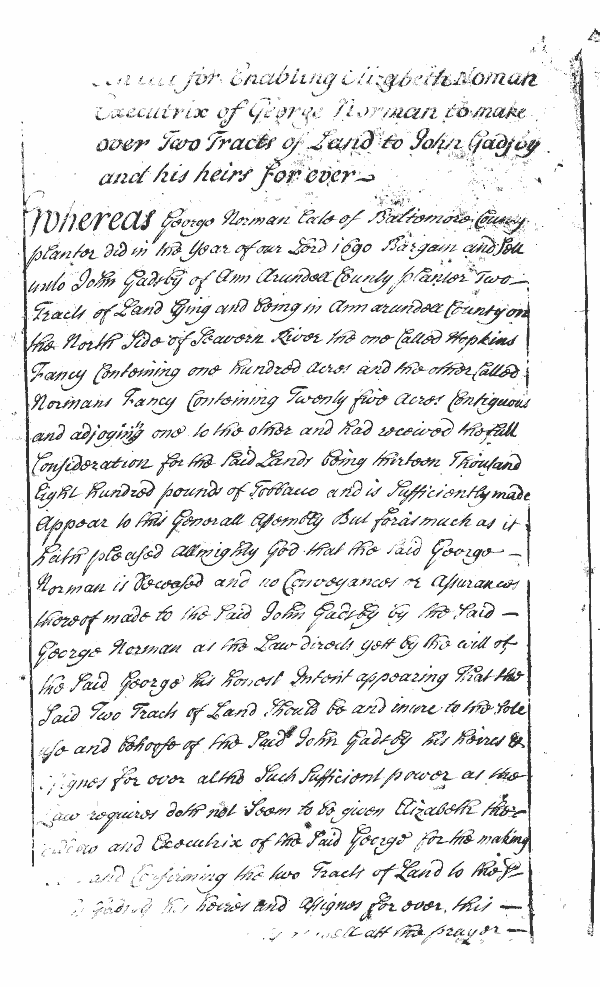 for Enabling Elizabeth Norman
Executrix of George Norman to make
over Two Tracts of Land to John Gadsby
and his heirs for ever
Whereas George Norman late of Baltemore County
planter did in the Year of our Lord 1690 Bargain and Sell
unto John Gadsby of Ann Arundell County planter Two
Tracts of Land lying and being in Ann arundell County on
the North Side of Seavern River the one Called Hopkins
Fancy Conteining one hundred Acres and the other Called
Normans Fancy Conteining Twenty five Acres Contiguous
and adjoyning one to the other and had received the full
Consideration for the Said Lands being thirteen Thousand
Eight hundred pounds of Tobbacco and is Sufficiently made
Appear to this Generall Assembly But forasmuch as it
hath pleased Allmighty God that the Said George
Norman is Deceased and no Conveyances or Assurances
thereof made to the Said John Gadsby by the Said
George Norman as the Law directs yett by the will of
the Said George his honest Intent appearing that the
Said Two Tracts of Land Should be and inure to the Sole
use and behoofe of the Said John Gadsby his heires &
Assignes for ever altho Such Sufficient power as the
Law requires doth not Seem to be given Elizabeth the
and Executrix of the Said George for the making
and Confirming the two Tracts of Land to the Sd
Gadsby his heires and Assignes for ever, this
att the prayer